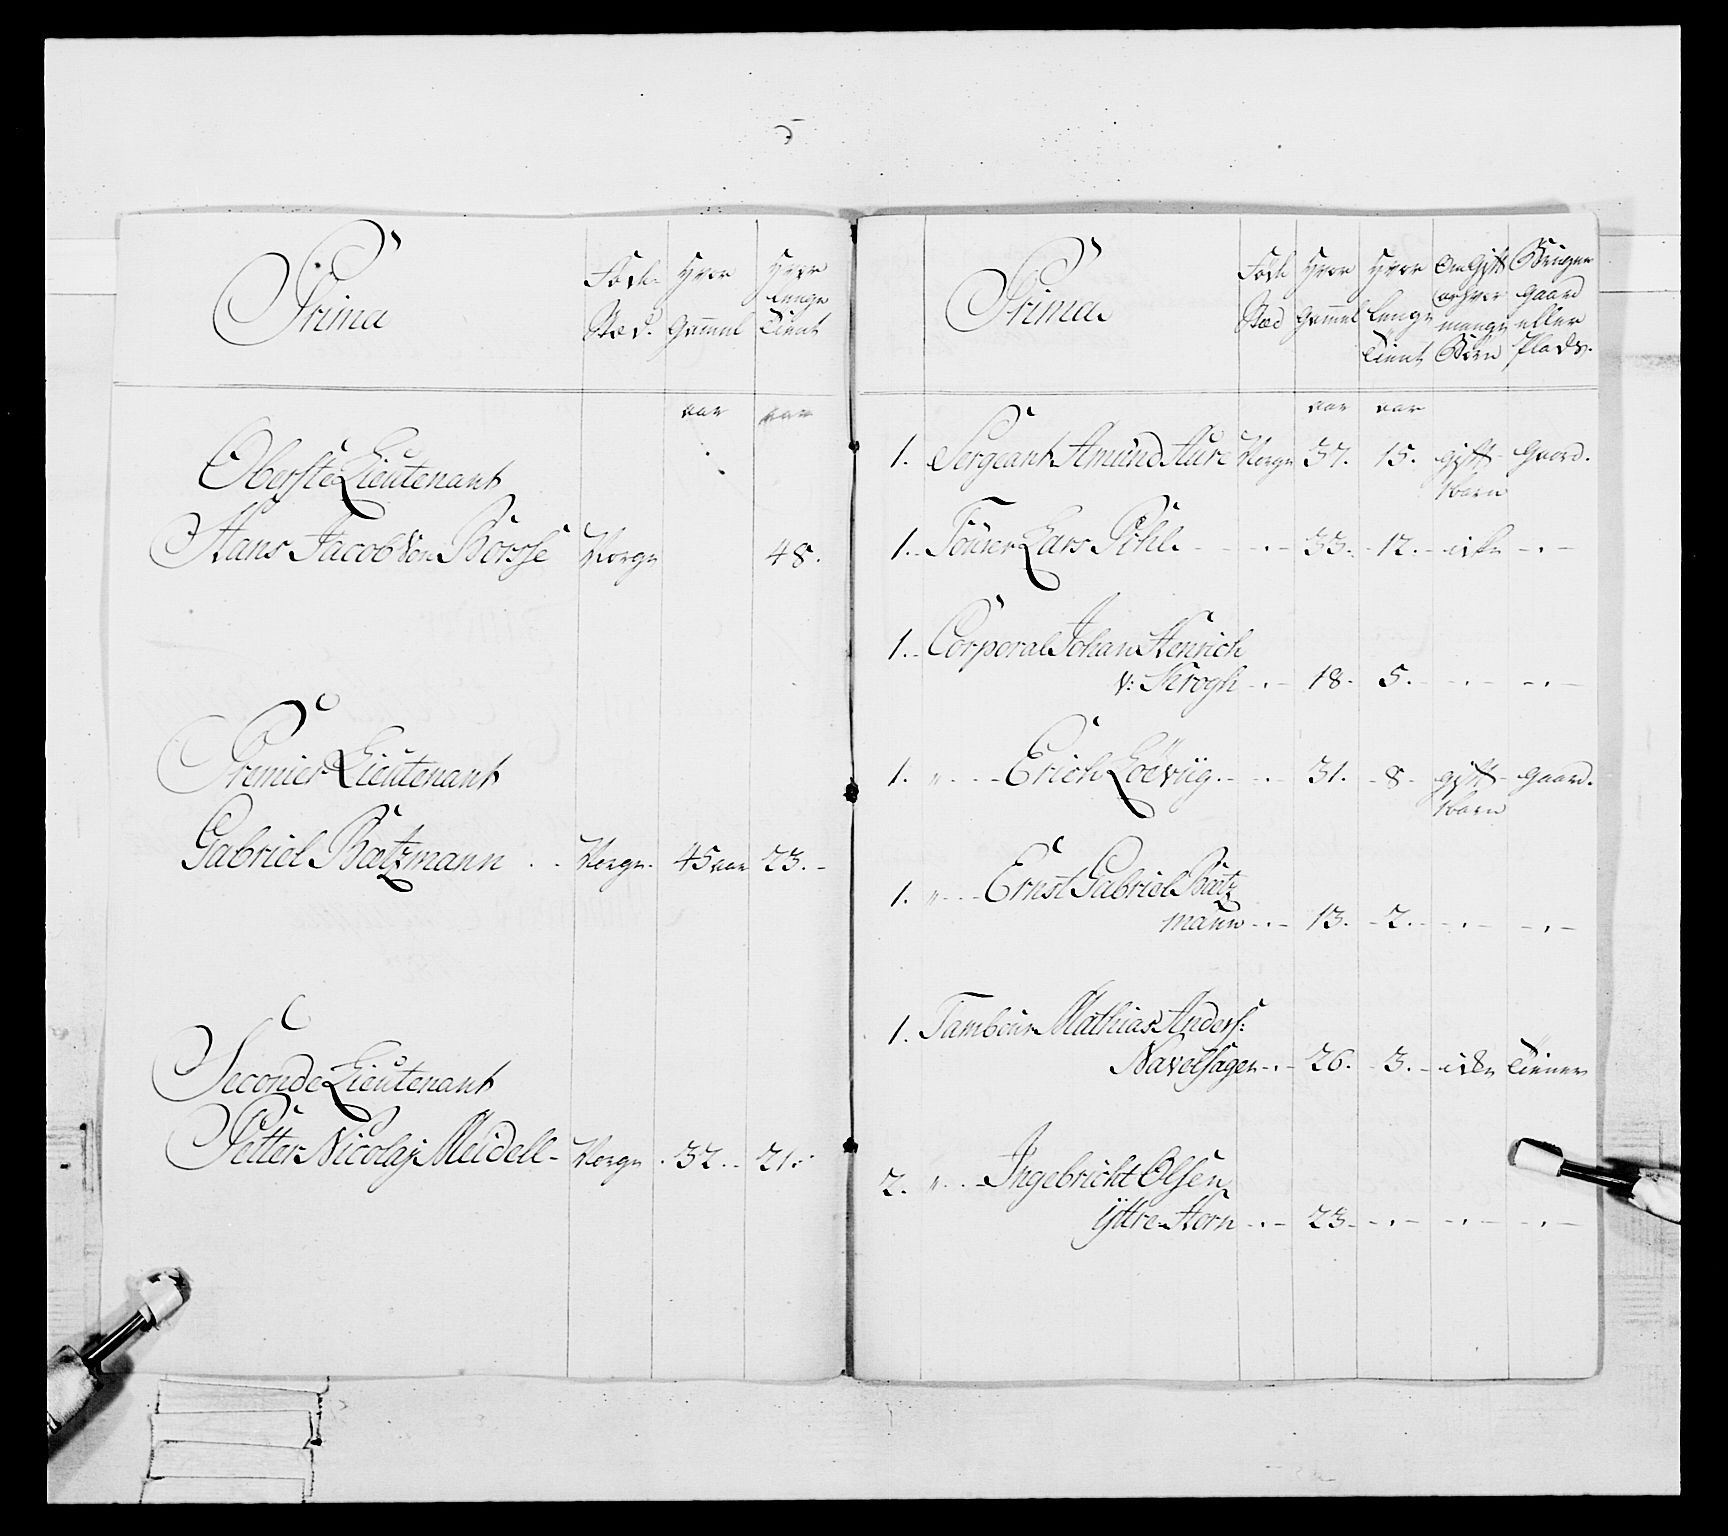 Prima
Føde Stæd.
Hvor Gammel
Hvor lenge Tient
aar aar
Oberste Lieutenant
Hans Jacob von Børsse Norge 48.
Premier Lieutenant
Gabriel Bætzmann Norge. 45 aar 23.
Seconde Lieutenant
Petter Nicolaj Meidell Norge 32. 21.
Prima
Føde Stæd
Hvor Gammel
Hvor lenge Tient
Om Gift og hvor mange Børn
Bruger gaard eller Plads.
aar aar
1. Sergeant Amund Aure Norge 37. 15. gift Gaard.
1 barn
1. Fourer Lars Pihl 33. 12. icke
1. Corporal Johan Henrich
v: Krogh 18. 5.
1. " Erich Löeviig. 31. 8. gift gaard.
1 barn
1. " Ernst Gabriel Bætz
mann 13. 2.
1. Tambour Mathias Anders:
Navelsager 26. 3. icke Tiener
2. " Ingebricht Olsen
ÿttre Horn 23.